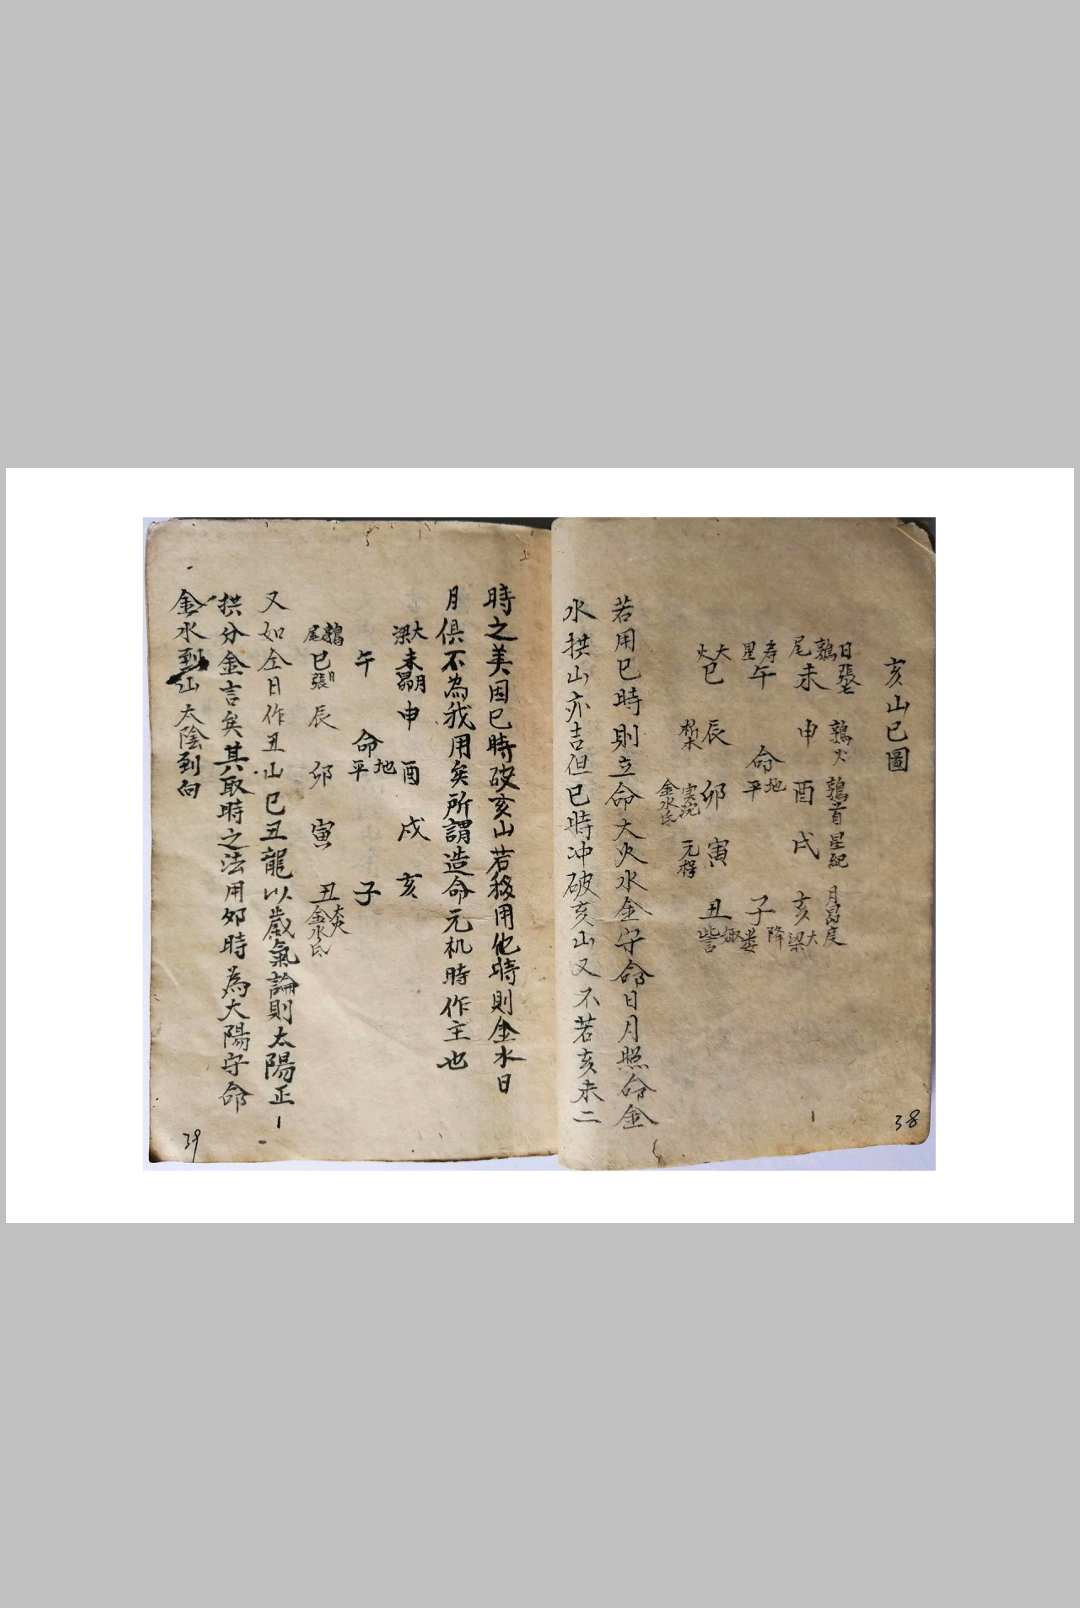 亥山巳圖
日張 鶉火 鶉首 星紀 月昴度
鶉尾 未 申 酉 戌 亥 大梁
寿星 午 命 地平 子 降婁
大火 巳 辰 卯 寅 丑 娵訾
析木 実沈 元枵
金水氐
若用巳時則立命大火水金守命日月照命金
水拱山亦吉但巳時冲破亥山又不若亥未二
38
時之美因巳時破亥山若移用他時則金水日
月俱不為我用矣所謂造命元机時作主也
大梁 未 月昴 申 酉 戌 亥
午 命 地平 子
鶉尾 巳 日張 辰 卯 寅 丑 大火 金水氐
又如仝日作丑山巳丑龍以歲氣論則太陽正
拱分金言矣其取時之法用夘時為大陽守命
金水到山太陰到向
39